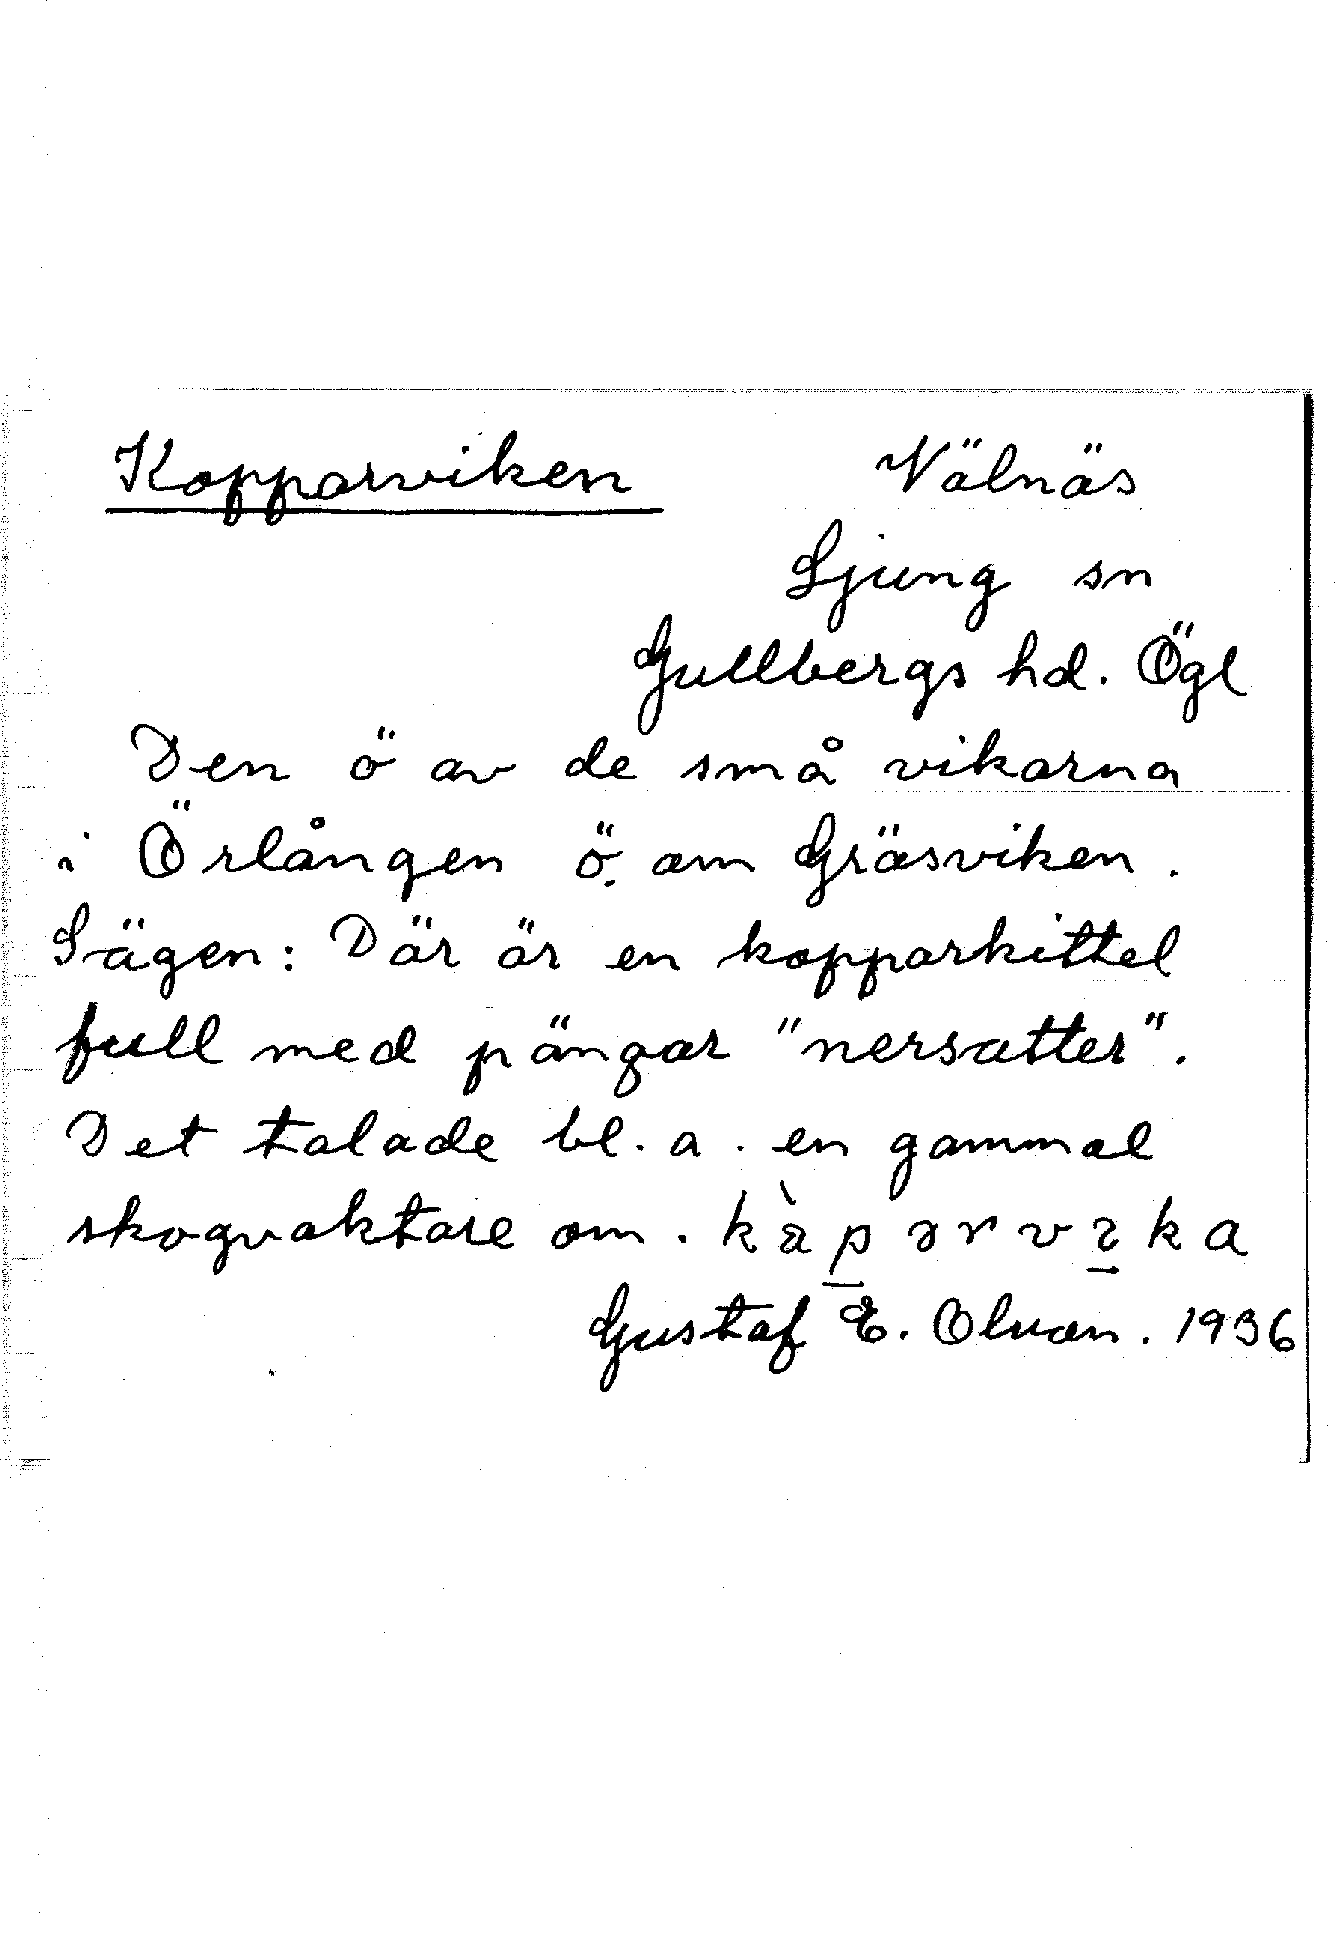 Kopparviken Välnäs
Ljung sn
Gullbergs hd. Ögl
Den ö av de små vikarna
i Örlången ö. om Gräsviken.
Sägen: Där är en kopparkittel
full med pängar "nersatter".
Det talade bl. a. en gammal
skogvaktare om.
Gustaf E. 1936